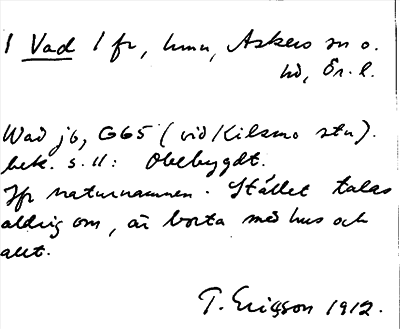 1 Vad 1 fr, hmn, Askers sn o.
hd, Ör. l.
Wad jb, G65 (vid Kilsmo stn).
bek. s. ll: Obebyggdt.
Jfr naturnamnen. Stället talas
aldrig om, är borta med hus och
allt.
T. Ericsson 1912.